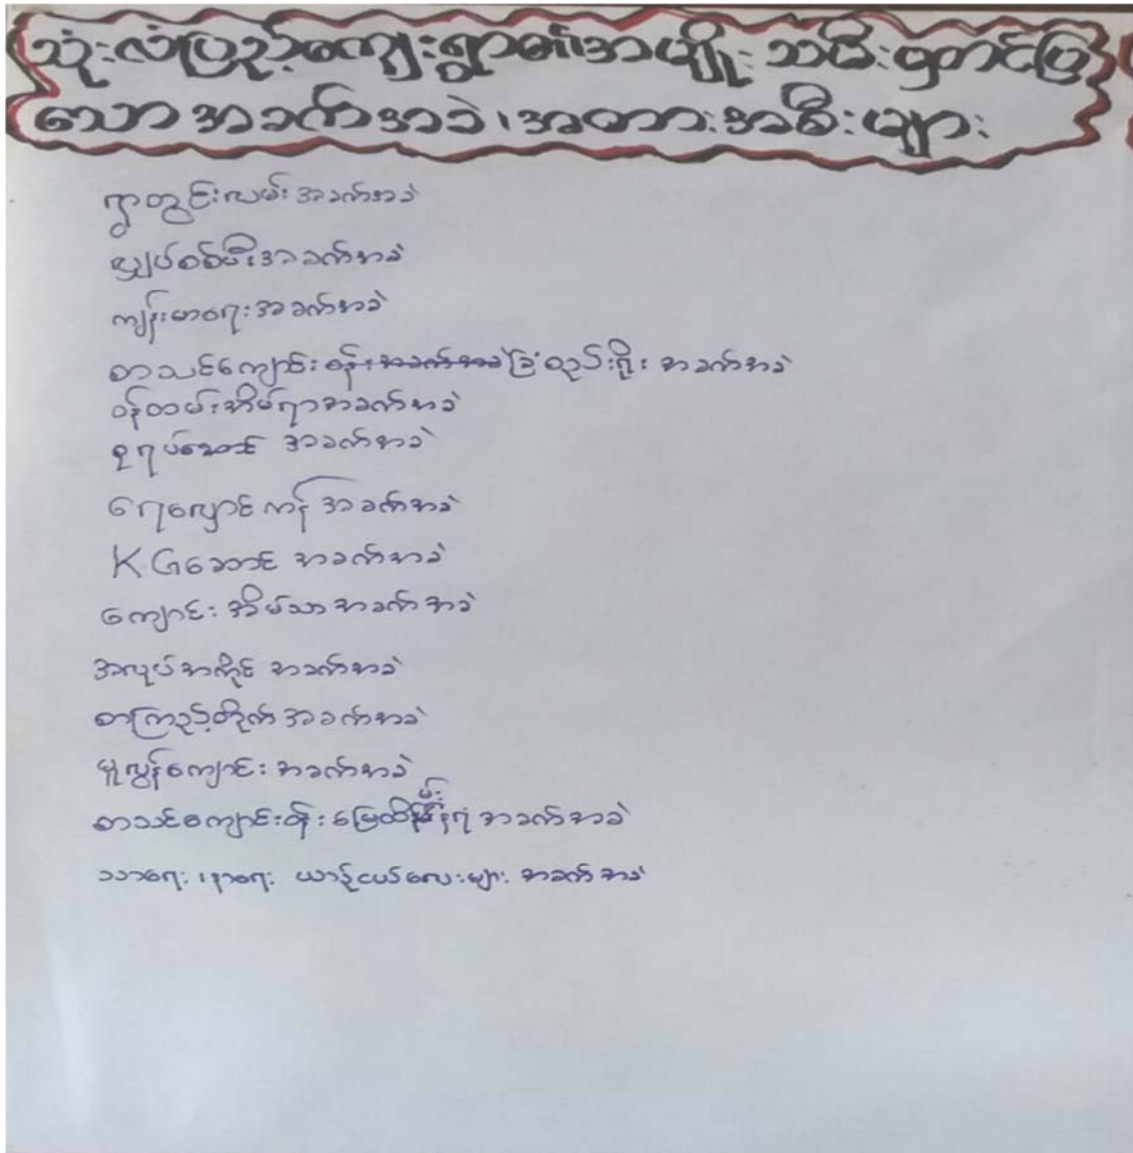 သုံးလံပြည့်ကျေးရွာ၏အမျိုးသမီးမှတင်ပြ
သောအခက်အခဲ၊အတားအစီးများ
ရွာတွင်းလမ်းအခက်အခဲ
လျှပ်စစ်မီးအခက်အခဲ
ကျန်းမာရေးအခက်အခဲ
စာသင်ကျောင်းဝန်းအခက်အခဲခြံစည်းရိုး အခက်အခဲ
ဝန်ထမ်းအိမ်ရာအခက်အခဲ
ဥရုပ်ဆောင် အခက်အခဲ
ရေလှောင်ကန် အခက်အခဲ
KGဆောင် အခက်အခဲ
ကျောင်းအိမ်သာအခက်အခဲ
အလုပ်အကိုင် အခက်အခဲ
စာကြည့်တိုက်အခက်အခဲ
မူလွန်ကျောင်း အခက်အခဲ
စာသင်ကျောင်းဝန်းမြေထိန်းနံရံအခက်အခဲ
သာရေး၊နာရေး ယာဉ်ငယ်လေးများ အခက်အခဲ